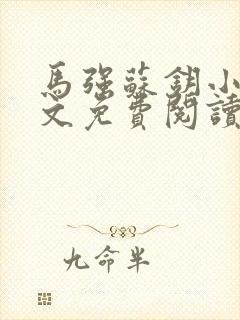 馬強蘇鈅小
文免費閱讀
九命半